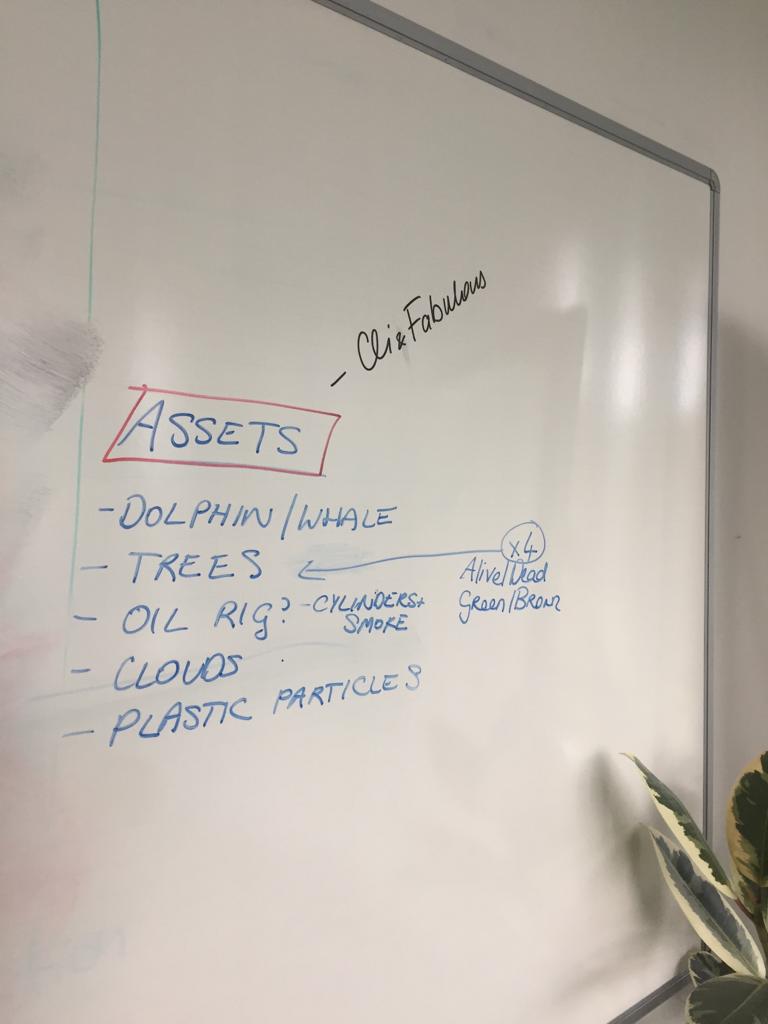 - Cli&Fabulous
ASSETS
- DOLPHIN/WHALE
- TREES
x4
Alive/Dead
Green/Brown
- OIL RIG? - CYLINDERS+
SMOKE
- CLOUDS
- PLASTIC PARTICLES